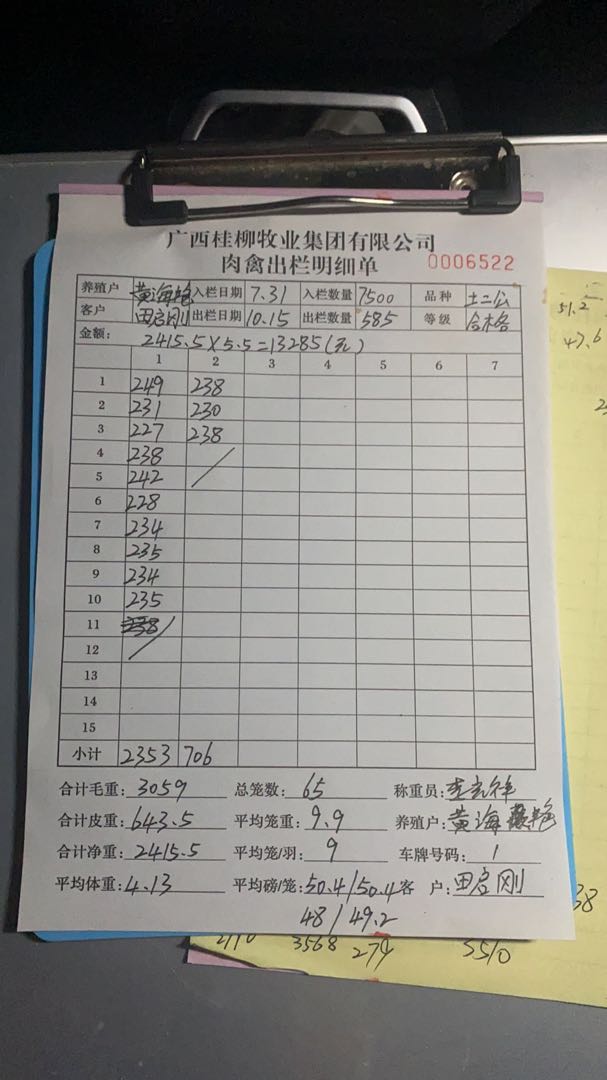 广西桂柳牧业集团有限公司
肉禽出栏明细单 0006522
养殖户 黄海艳 入栏日期 7.31 入栏数量 7500 品种 土二公
客户 田启刚 出栏日期 10.15 出栏数量 585 等级 合格
金额: 2415.5×5.5=13285(元)
1 2 3 4 5 6 7
1 249 238
2 231 230
3 227 238
4 238
5 242
6 228
7 234
8 235
9 234
10 235
11 238
12
13
14
15
小计 2353 706
合计毛重: 3059 总笼数: 65 称重员:
合计皮重: 643.5 平均笼重: 9.9 养殖户: 黄海艳
合计净重: 2415.5 平均笼/羽: 9 车牌号码: 1
平均体重: 4.13 平均磅/笼: 50.4/50.4 客 户: 田启刚
48/49.2
51.2
47.6
38
3568 274 3510